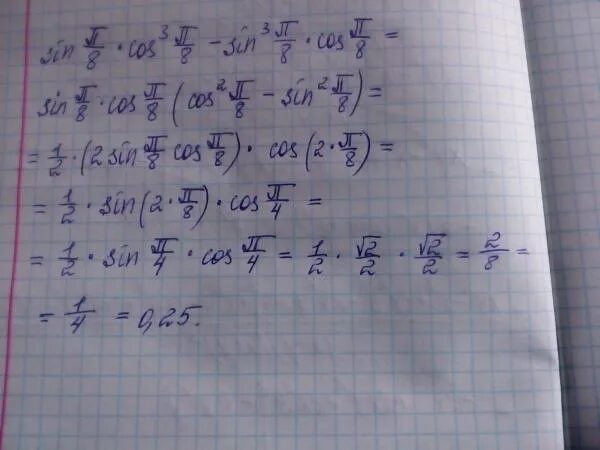 sin π/8 · cos³ π/8 − sin³ π/8 · cos π/8 =
sin π/8 · cos π/8 (cos² π/8 − sin² π/8) =
= 1/2 · (2 sin π/8 cos π/8) · cos(2 · π/8) =
= 1/2 · sin(2 · π/8) · cos π/4 =
= 1/2 · sin π/4 · cos π/4 = 1/2 · √2/2 · √2/2 = 2/8 =
= 1/4 = 0,25.